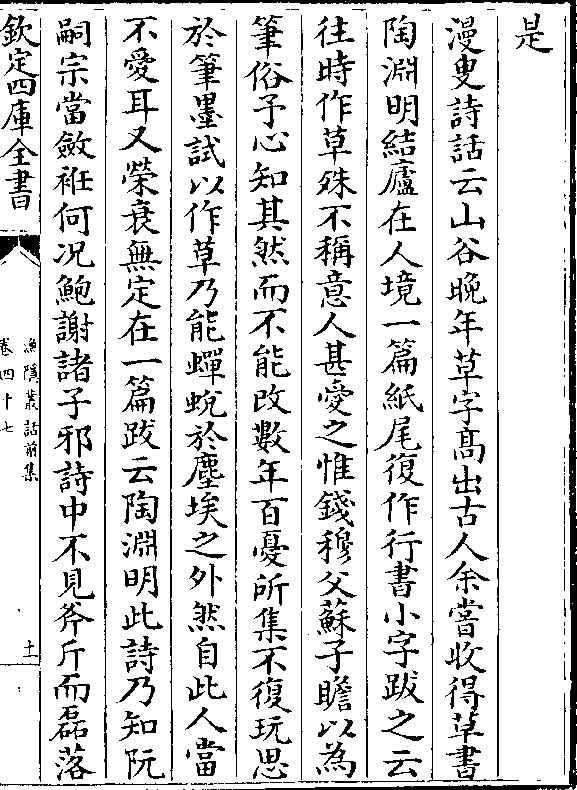 是
漫叟詩話云山谷晚年草字髙出古人余嘗收得草書
陶淵明結廬在人境一篇紙尾復作行書小字跋之云
往時作草殊不稱意人甚愛之惟錢穆父蘇子瞻以為
筆俗予心知其然而不能改數年百憂所集不復玩思
於筆墨試以作草乃能蟬蛻於塵埃之外然自此人當
不愛耳又榮衰無定在一篇跋云陶淵明此詩乃知阮
嗣宗當斂袵何况鮑謝諸子邪詩中不見斧斤而磊落
欽定四庫全書
漁隠叢話前集
卷四十七
十一